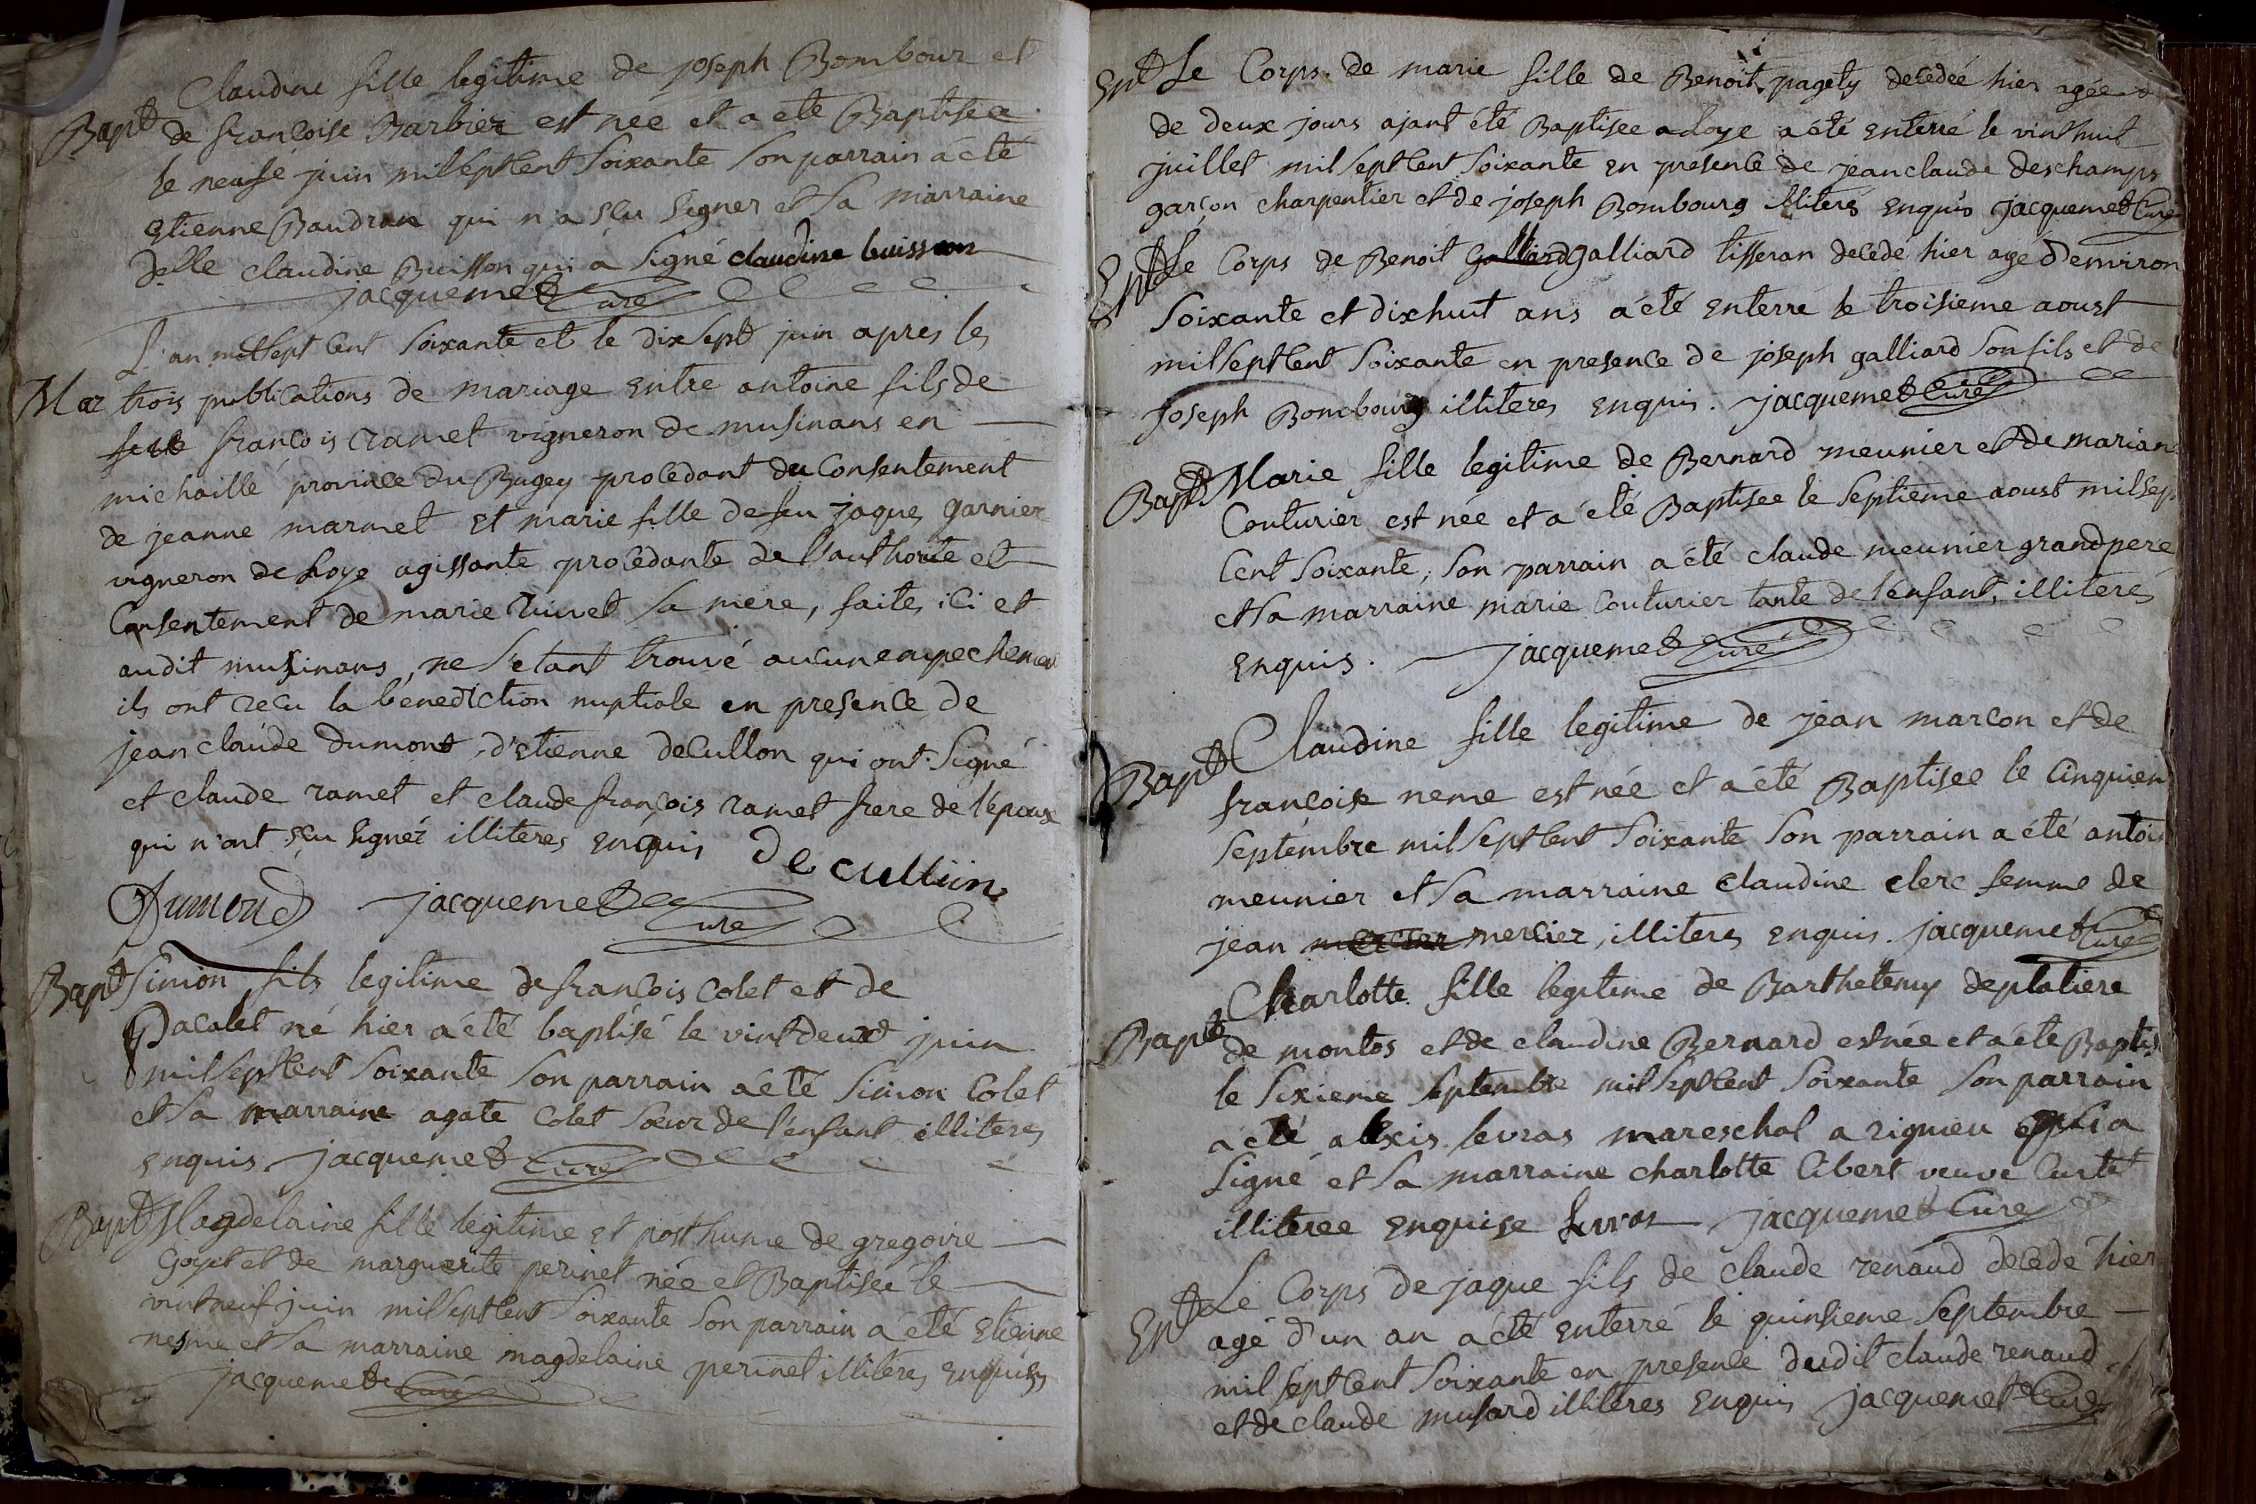 Claudine fille legitime de joseph Bombour et
Bapt de francoise Barbier est née et a eté Baptisée
le neufe juin milseptcent soixante son parrain a eté
etienne Baudran qui n'a sçu signer et sa marraine
delle claudine Buisson qui a signé claudine buisson
jacquemet Curé
L'an milsept cent soixante et le dix sept juin apres les
Mar trois publications de mariage entre antoine fils de
francois ramet vigneron de musinans en
michaille province du Bugey procedant du Consentement
de jeanne marmet et marie fille de feu jaques garnier
vigneron de Loye agissante procedante de l'authorité et
Consentement de marie sa mere, faites ici et
audit musinans, ne s'etant trouvé aucun empechemen
ils ont recu la benediction nuptiale en presence de
jean claude dumont, d'etienne decullon qui ont signé
et claude ramet et claude françois ramet frere de l'epoux
qui n'ont sçu signer illiteres enquis decullion
Dumond jacquemet Curé
Bapt Simon fils legitime de francois Colet et de
Pacalet né hier a été baptisé le vintdeux juin
milseptcent soixante son parrain a eté simon Colet
et sa marraine agate Colet soeur de l'enfant illiteres
enquis jacquemet Curé
Bapt Magdelaine fille legitime et posthume de gregoire
et de marguerite perinet née et Baptisée le
vintneuf juin milseptcent soixante son parrain a été etienne
nesme et sa marraine magdelaine perinet illiteres enquis
jacquemet Curé
Ent Le Corps de marie fille de Benoit pagety decedée hier agée
de deux jours ajant été Baptisee a Loye a été enterré le vinthuit
juillet milseptcent soixante en presence de jeanclaude deschamps
garçon charpentier et de joseph Bombourg illiterés enquis jacquemet Curé
Ent Le Corps de Benoit Galliard galliard tisseran decedé hier agé d'environ
soixante et dixhuit ans a été enterré le troisieme aoust
milseptcent soixante en presence de joseph galliard son fils et de
joseph Bombourg illiteres enquis. jacquemet Curé
Bapt Marie fille legitime de Bernard meunier et de marian
Couturier est née et a été Baptisee le septieme aoust milsep
Cent soixante, son parrain a été claude meunier grandpere
et sa marraine marie Couturier tante de l'enfant, illiteres
enquis. jacquemet Curé
Bapt Claudine fille legitime de jean marcon et de
françoise neme est née et a été Baptisee le Cinquiem
septembre milseptcent soixante son parrain a été antoin
meunier et sa marraine claudine clerc femme de
jean mercier mercier, illiteres enquis. jacquemet Curé
Charlotte fille legitime de Barthelemy deplatiere
Bapt de montos et de claudine Bernard est née et a été Baptis
le sixieme septembre milseptcent soixante son parrain
a été alexis levras mareschal a rignieu qui a
signé et sa marraine charlotte Cibert veuve Curtet
illiteree enquise levras jacquemet Curé
Ent Le Corps de jaque fils de claude renaud decede hier
agé d'un an a été enterré le quinsieme septembre
mil septcent soixante en presence dudit claude renaud
et de claude musard illiteres enquis jacquemet Curé